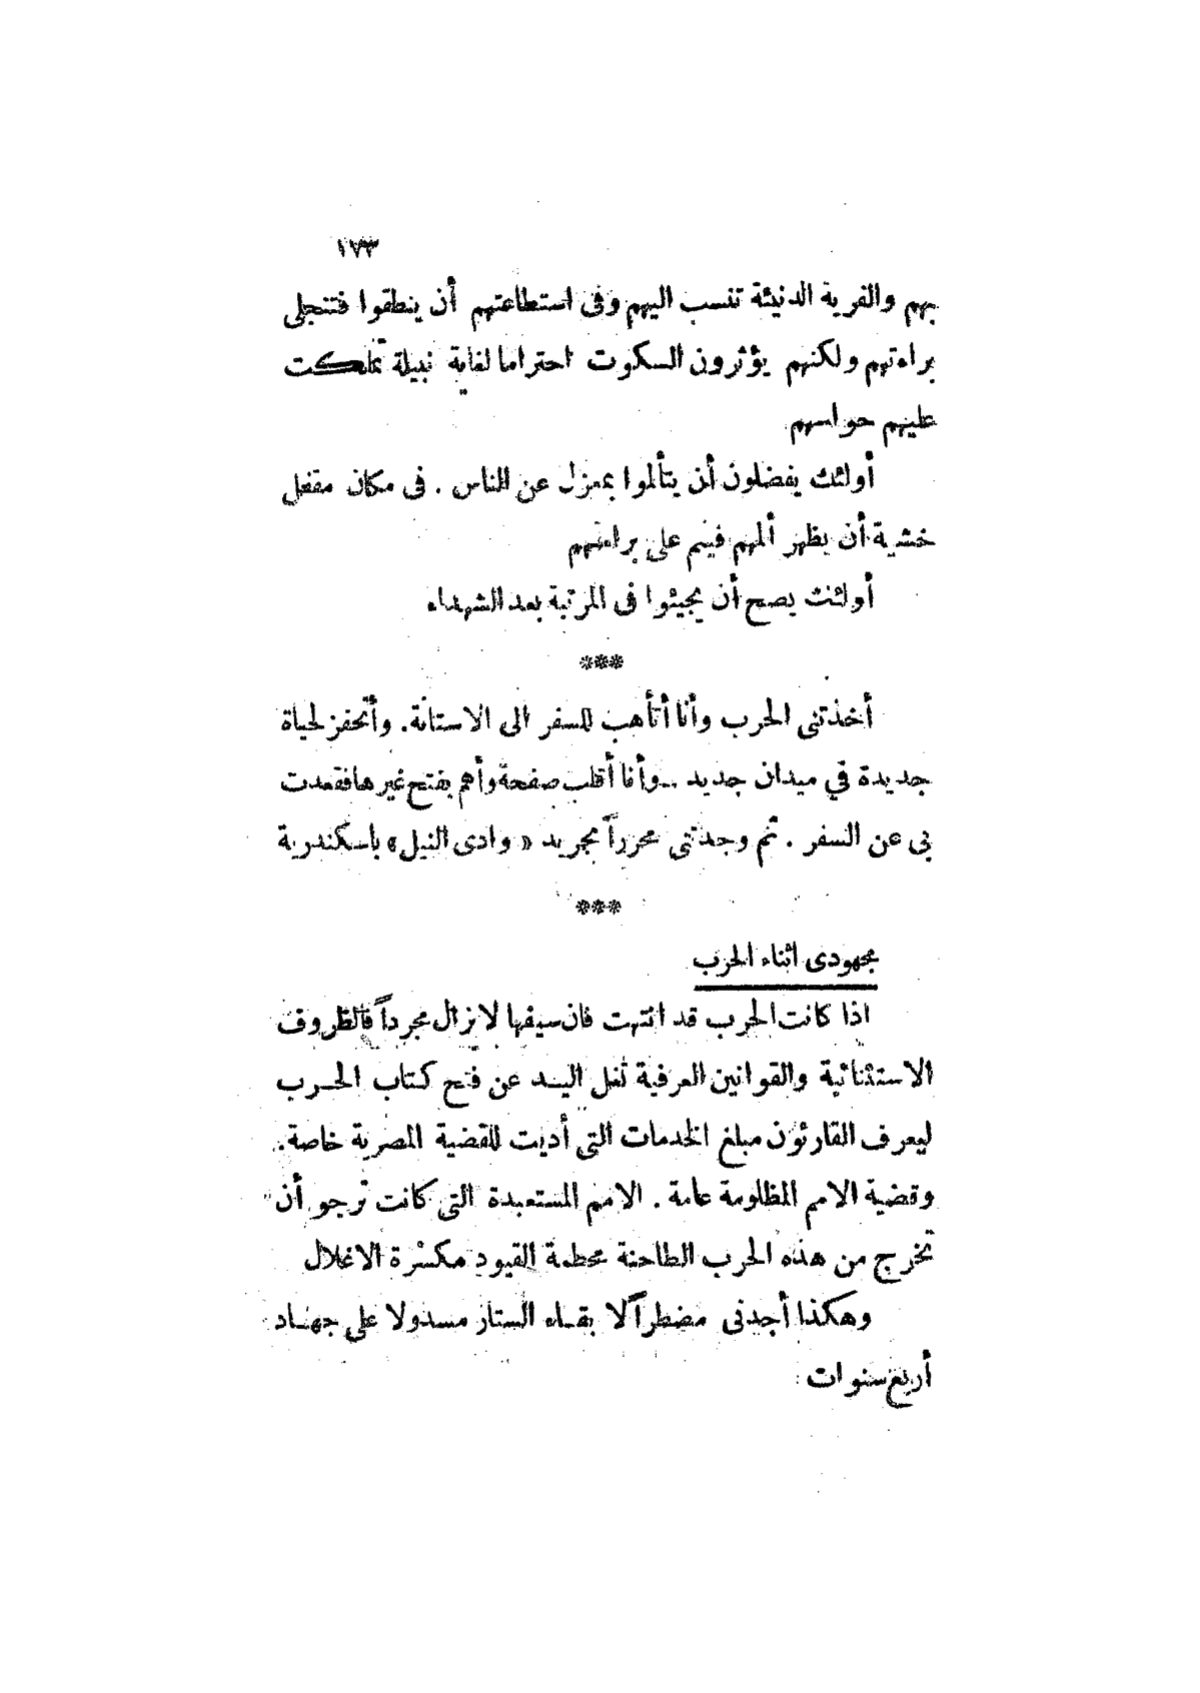 ١٧٣
بهم والفرية الدنيئة تنسب اليهم وفى استطاعتهم أن ينطقوا فتنجلى
براءتهم ولكنهم يؤثرون السكوت احتراما لغاية نبيلة تملكت
عليهم حواسهم
أولئك يفضلون أن يتألموا بمعزل عن الناس . فى مكان مقفل
خشية أن يظهر ألمهم فينم على براءتهم
أولئك يصح أن يجيئوا فى المرتبة بعد الشهداء
***
أخذتنى الحرب وأنا أتأهب للسفر الى الاستانة . وأتحفز لحياة
جديدة في ميدان جديد .. وأنا أقلب صفحة وأهم بفتح غيرها فقعدت
بى عن السفر . ثم وجدتنى محرراً بجريد « وادى النيل » باسكندرية
***
مجهودى اثناء الحرب
اذا كانت الحرب قد انتهت فان سيفها لا نزال مجرداً فالظروف
الاستثنائية والقوانين العرفية تغل اليـد عن فتح كتاب الحـرب
ليعرف القارئون مبلغ الخدمات التى أديت للقضية المصرية خاصة .
وقضية الامم المظلومة عامة . الامم المستعبدة التى كانت ترجو أن
تخرج من هذه الحرب الطاحنة محطمة القيود مكسرة الاغلال
وهكذا أجدنى مضطراً لا بقـاء الستار مسدولا على جهـاد
أربع سنوات